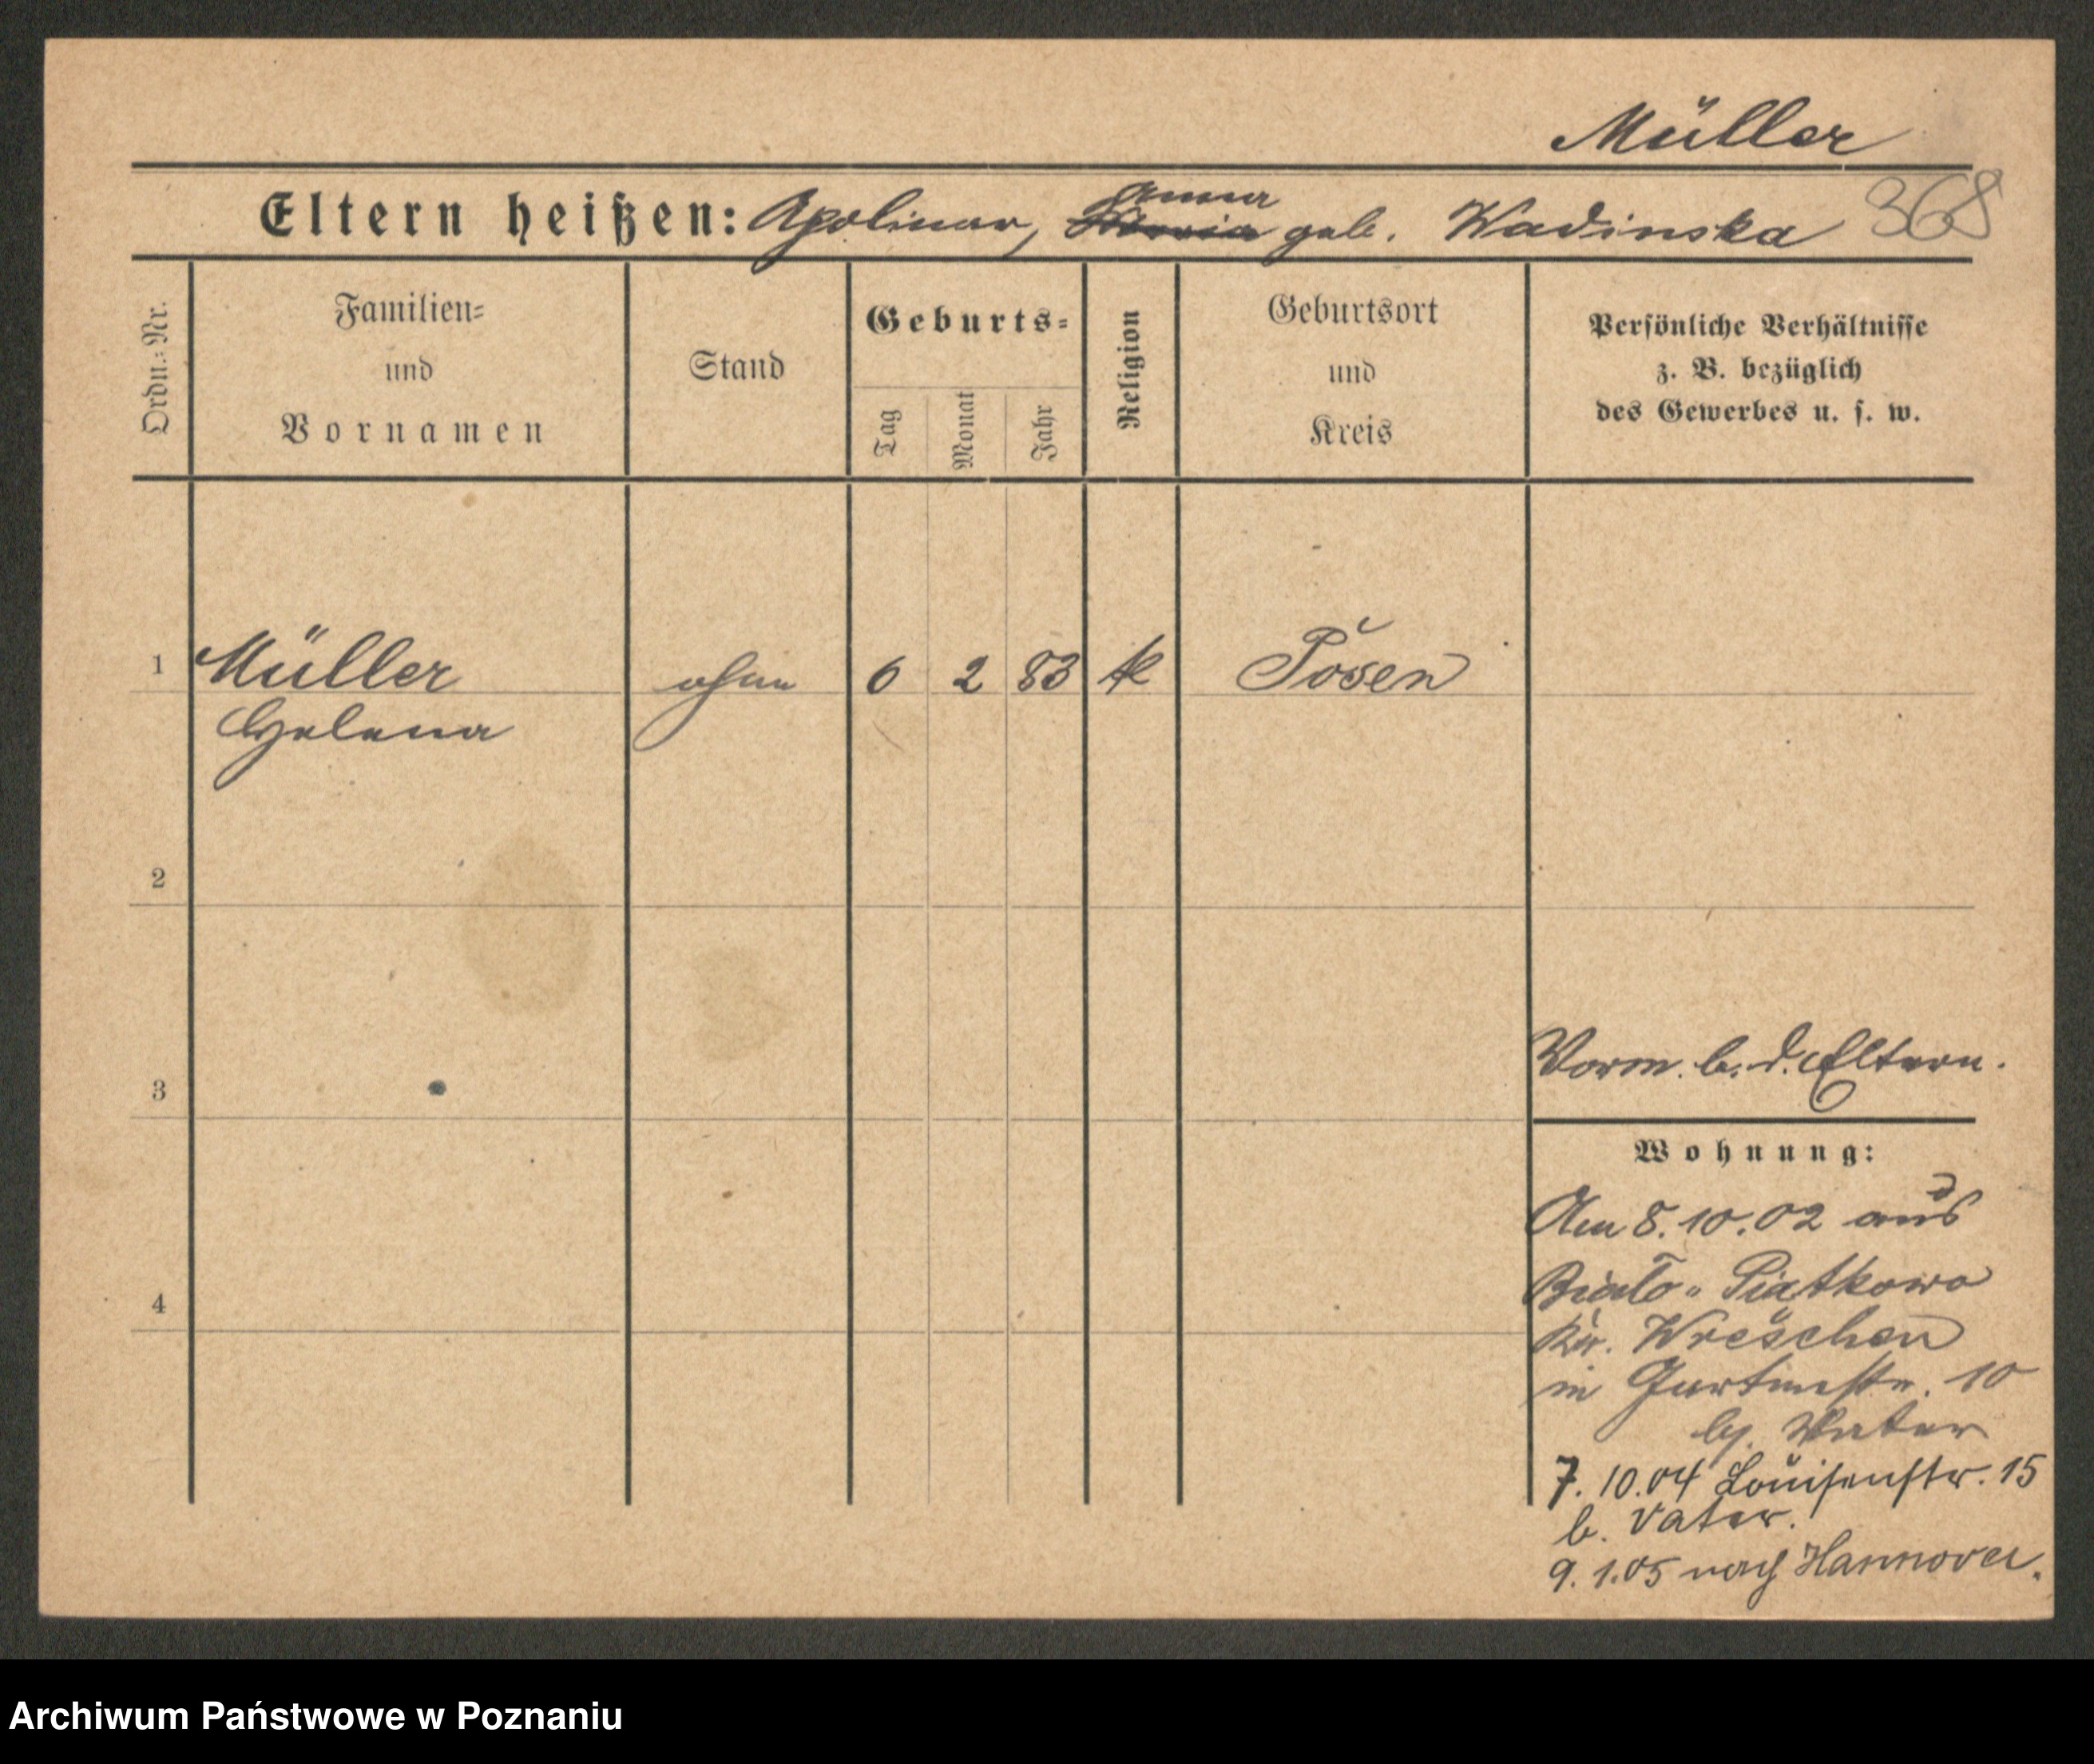 Müller
Eltern heißen: Apolinar, Anna geb. Wadinska 368
Ordn.=Nr.
Familien=
und
Vornamen
Stand
Geburts=
Tag
Monat
Jahr
Religion
Geburtsort
und
Kreis
Persönliche Verhältnisse
z. B. bezüglich
des Gewerbes u. s. w.
1 Müller ohne 6 2 83 k Posen
Helena
2
3
4
Vorm. b. d. Eltern.
Wohnung:
Am 8.10.02 aus
Bialo-Piątkowo
Kr. Wreschen
in Gartenstr. 10
bz. Vater
7.10.04 Louisenstr. 15
b. Vater.
9.1.05 nach Hannover.
Archiwum Państwowe w Poznaniu